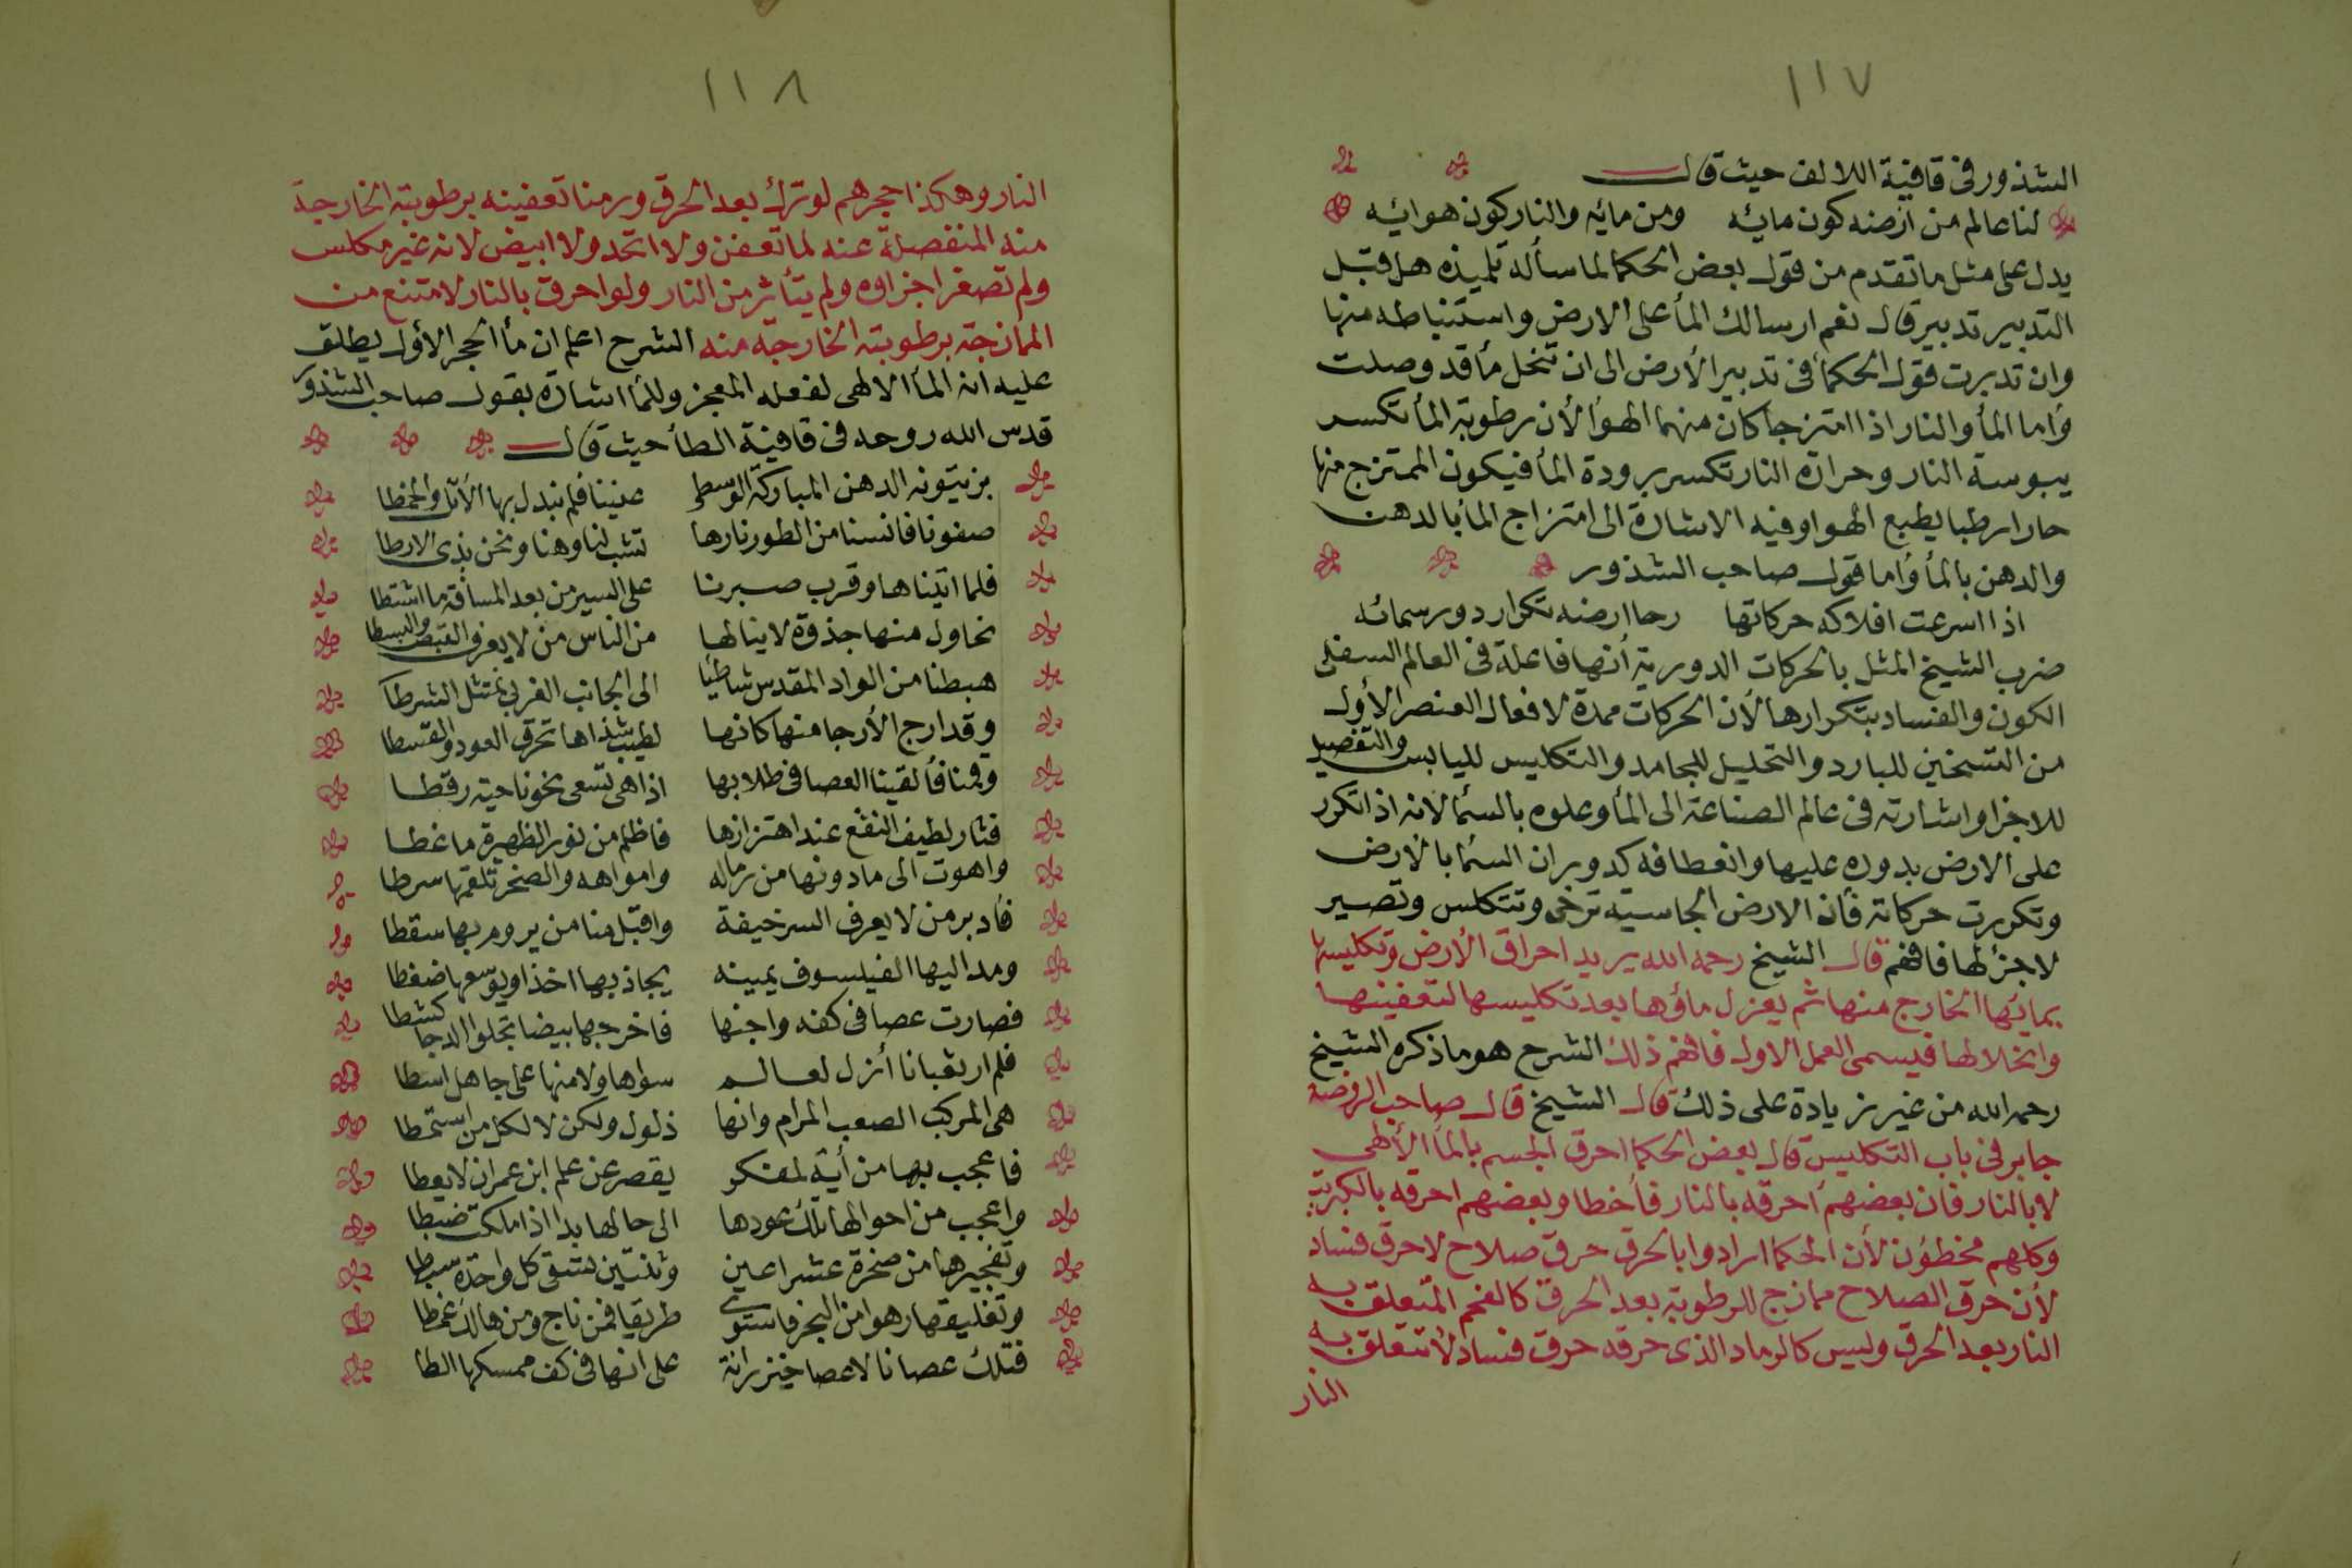 ١١٧
الشذور فى قافية اللالف حيث قال
لنا عالم من ارضه كون مائه ومن مايه والنار كون هوائه
يدل على مثل ما تقدم من قول بعض الحكما لما سأله تلميذه هل قبل
التدبير تدبير قال نعم ارسالك المأ على الارض واستنباطه منها
وان تدبرت قول الحكمأ فى تدبير الأرض الى ان تنحل مأ قد وصلت
وأما المأ والنار اذا امتزجا كان منهما الهوأ لأن رطوبة المأ تكسر
يبوسة النار وحرارة النار تكسر برودة المأ فيكون الممتزج منها
حارا رطبا بطبع الهوا وفيه الاشارة الى امتزاج المأ بالدهن
والدهن بالمأ وأما قول صاحب الشذور
اذا اسرعت افلاكه حركاتها رحا ارضه تكرار دور سمائه
ضرب الشيخ المثل بالحركات الدورية أنها فاعلة فى العالم السفلى
الكون والفساد بتكرارها لأن الحركات ممدة لافعال العنصر الأول
من التسخين للبارد والتحليل للجامد والتكليس لليابس والتفصيل
للاجزا واشارته فى عالم الصناعة الى المأ وعلوه بالسمأ لانه اذا تكرر
على الارض بدوره عليها وانعطافه كدوران السمأ بالارض
وتكررت حركاته فأن الارض الجاسية ترخى وتتكلس وتصير
لا جزٔ لها فافهم قال الشيخ رحمه الله يريد احراق الأرض وتكليسها
بمائها الخارج منها ثم يعزل مأوها بعد تكليسها لتعفينها
وانحلالها فيسمى العمل الاول فافهم ذلك الشرح هو ما ذكره الشيخ
رحمه الله من غير زيادة على ذلك قال الشيخ قال صاحب الروضة
جابر فى باب التكليس قال بعض الحكما احرق الجسم بالمأ الألهى
لا بالنار فان بعضهم احرقه بالنار فأخطا وبعضهم احرقه بالكبريت
وكلهم مخطؤن لأن الحكما ارادوا بالحرق حرق صلاح لا حرق فساد
لأن حرق الصلاح ممازج للرطوبة بعد الحرق كالفحم المتعلق به
النار بعد الحرق وليس كالرماد الذى حرقه حرق فساد لا تتعلق به
النار
١١٨
النار وهكذا حجرهم لو ترك بعد الحرق ورمنا تعفينه برطوبته الخارجة
منه المنفصلة عنه لما تعفن ولا اتحد ولا ابيض لانه غير مكلس
ولم تصغر اجزاوه ولم يتأثر من النار ولو احرق بالنار لامتنع من
الممازجة برطوبته الخارجة منه الشرح اعلم ان مأ الحجر الأول يطلق
عليه انه المأ الالهى لفعله المعجز وللمأ اشارة بقول صاحب الشذور
قدس الله روحه فى قافية الطأ حيث قال
بزيتونة الدهن المباركة الوسطى غنينا فلم نبدل بها الأثل والخمطا
صفونا فانسنا من الطور نارها تشب لنا وهنا ونحن بذى الارطا
فلما اتيناها وقرب صبرنا على السير من بعد المسافة ما اشتطا
نحاول منها جذوة لا ينالها من الناس من لا يعرف القبض والبسطا
هبطنا من الواد المقدس شاطيا الى الجانب الغربى نمتثل الشرطا
وقد ارج الأرجا منها كانها لطيب شذاها تحرق العود والقسطا
وقمنا فألقينا العصا فى طلابها اذا هى تسعى نحونا حية رقطا
فثار لطيف النقع عند اهتزازها فاظلم من نور الظهيرة ما غطا
واهوت الى ما دونها من رماله وامواهه والصخر تلقمها سرطا
فأدبر من لا يعرف السر خيفة واقبل منا من يروم بها سقطا
ومد اليها الفيلسوف يمينه يجاذبها اخذا ويوسعها ضغطا
فصارت عصا فى كفه واجنها فاخرجها بيضا تجلو الدجا كشطا
فلم ار ثعبانا أذل لعالم سواها ولا منها على جاهل اسطا
هى المركب الصعب المرام وانها ذلول ولكن لا لكل من استمطا
فاعجب بها من أية لمفكر يقصر عن علم ابن عمران لا يعطا
واعجب من احوالها تلك عودها الى حالها بدا اذا ملكت ضبطا
وتفجيرها من صخرة عشر اعين وثنتين تسقى كل واحدة سبطا
وتفليقها رهوا من البحر فاستوى طريقا فمن ناج ومن هالك غمطا
فتلك عصانا لا عصا خيزرانة على انها فى كف ممسكها الطا